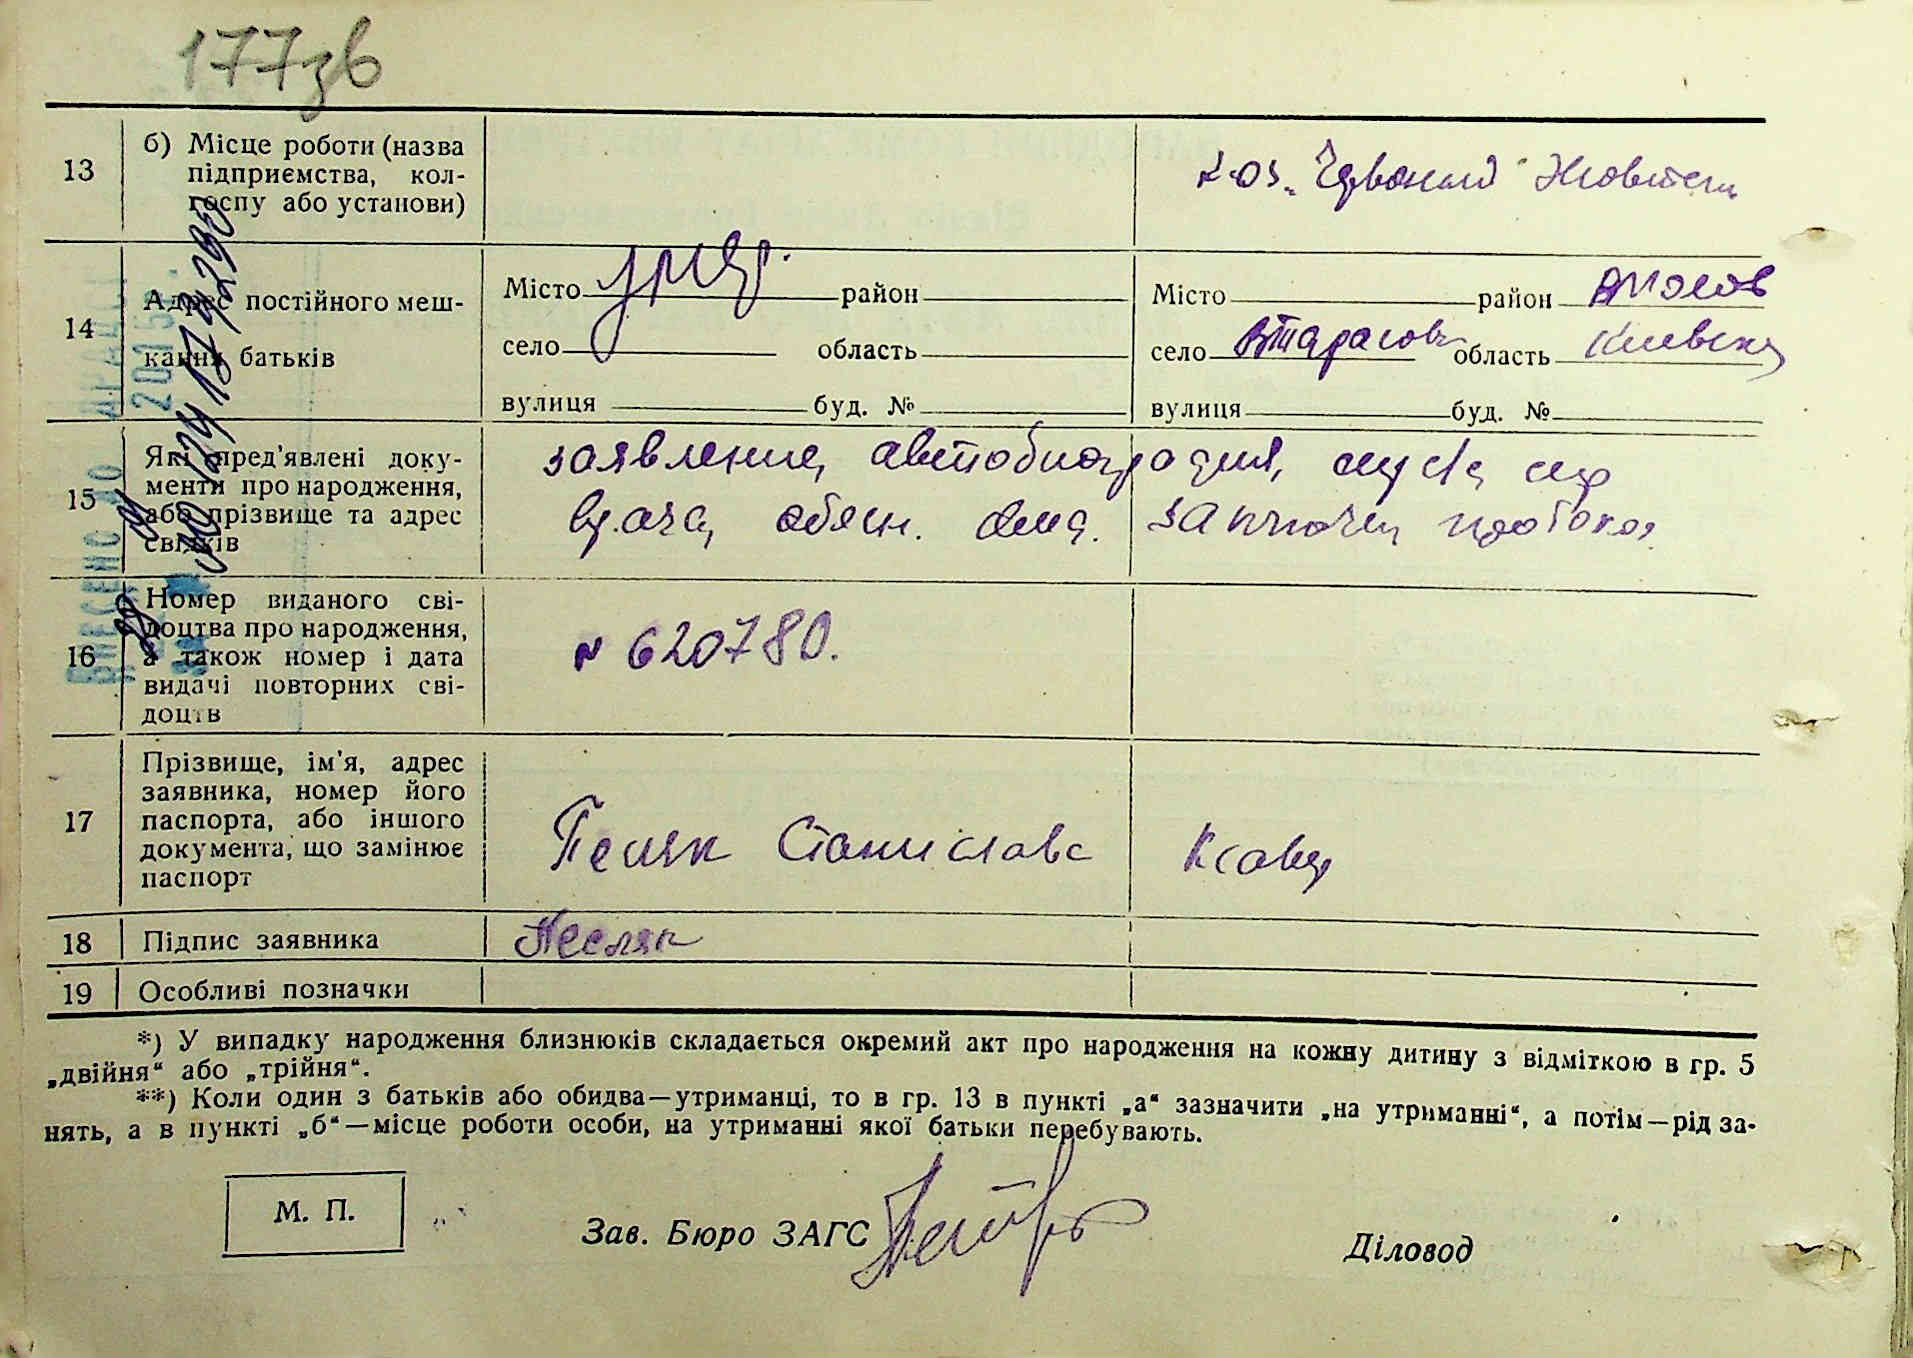 177зв
13
б) Місце роботи (назва
підприємства, кол-
госпу або установи)
к-оз. "Червоний Жовтень
14
Адрес постійного меш-
кання батьків
Місто район
село область
вулиця буд. №
Місто район
село область Киевска
вулиця буд. №
15
Які пред'явлені доку-
менти про народження,
або прізвище та адрес
свідків
заявление, автобиография,
врача, обясн.
16
Номер виданого сві-
доцтва про народження,
а також номер і дата
видачі повторних сві-
доцтв
№ 620780.
17
Прізвище, ім'я, адрес
заявника, номер його
паспорта, або іншого
документа, що замінює
паспорт
Станислава Ксавер
18
Підпис заявника
Песляк
19
Особливі позначки
*) У випадку народження близнюків складається окремий акт про народження на кожну дитину з відміткою в гр. 5
„двійня“ або „трійня“.
**) Коли один з батьків або обидва—утриманці, то в гр. 13 в пункті „а“ зазначити „на утриманні“, а потім—рід за-
нять, а в пункті „б“—місце роботи особи, на утриманні якої батьки перебувають.
М. П.
Зав. Бюро ЗАГС
Діловод